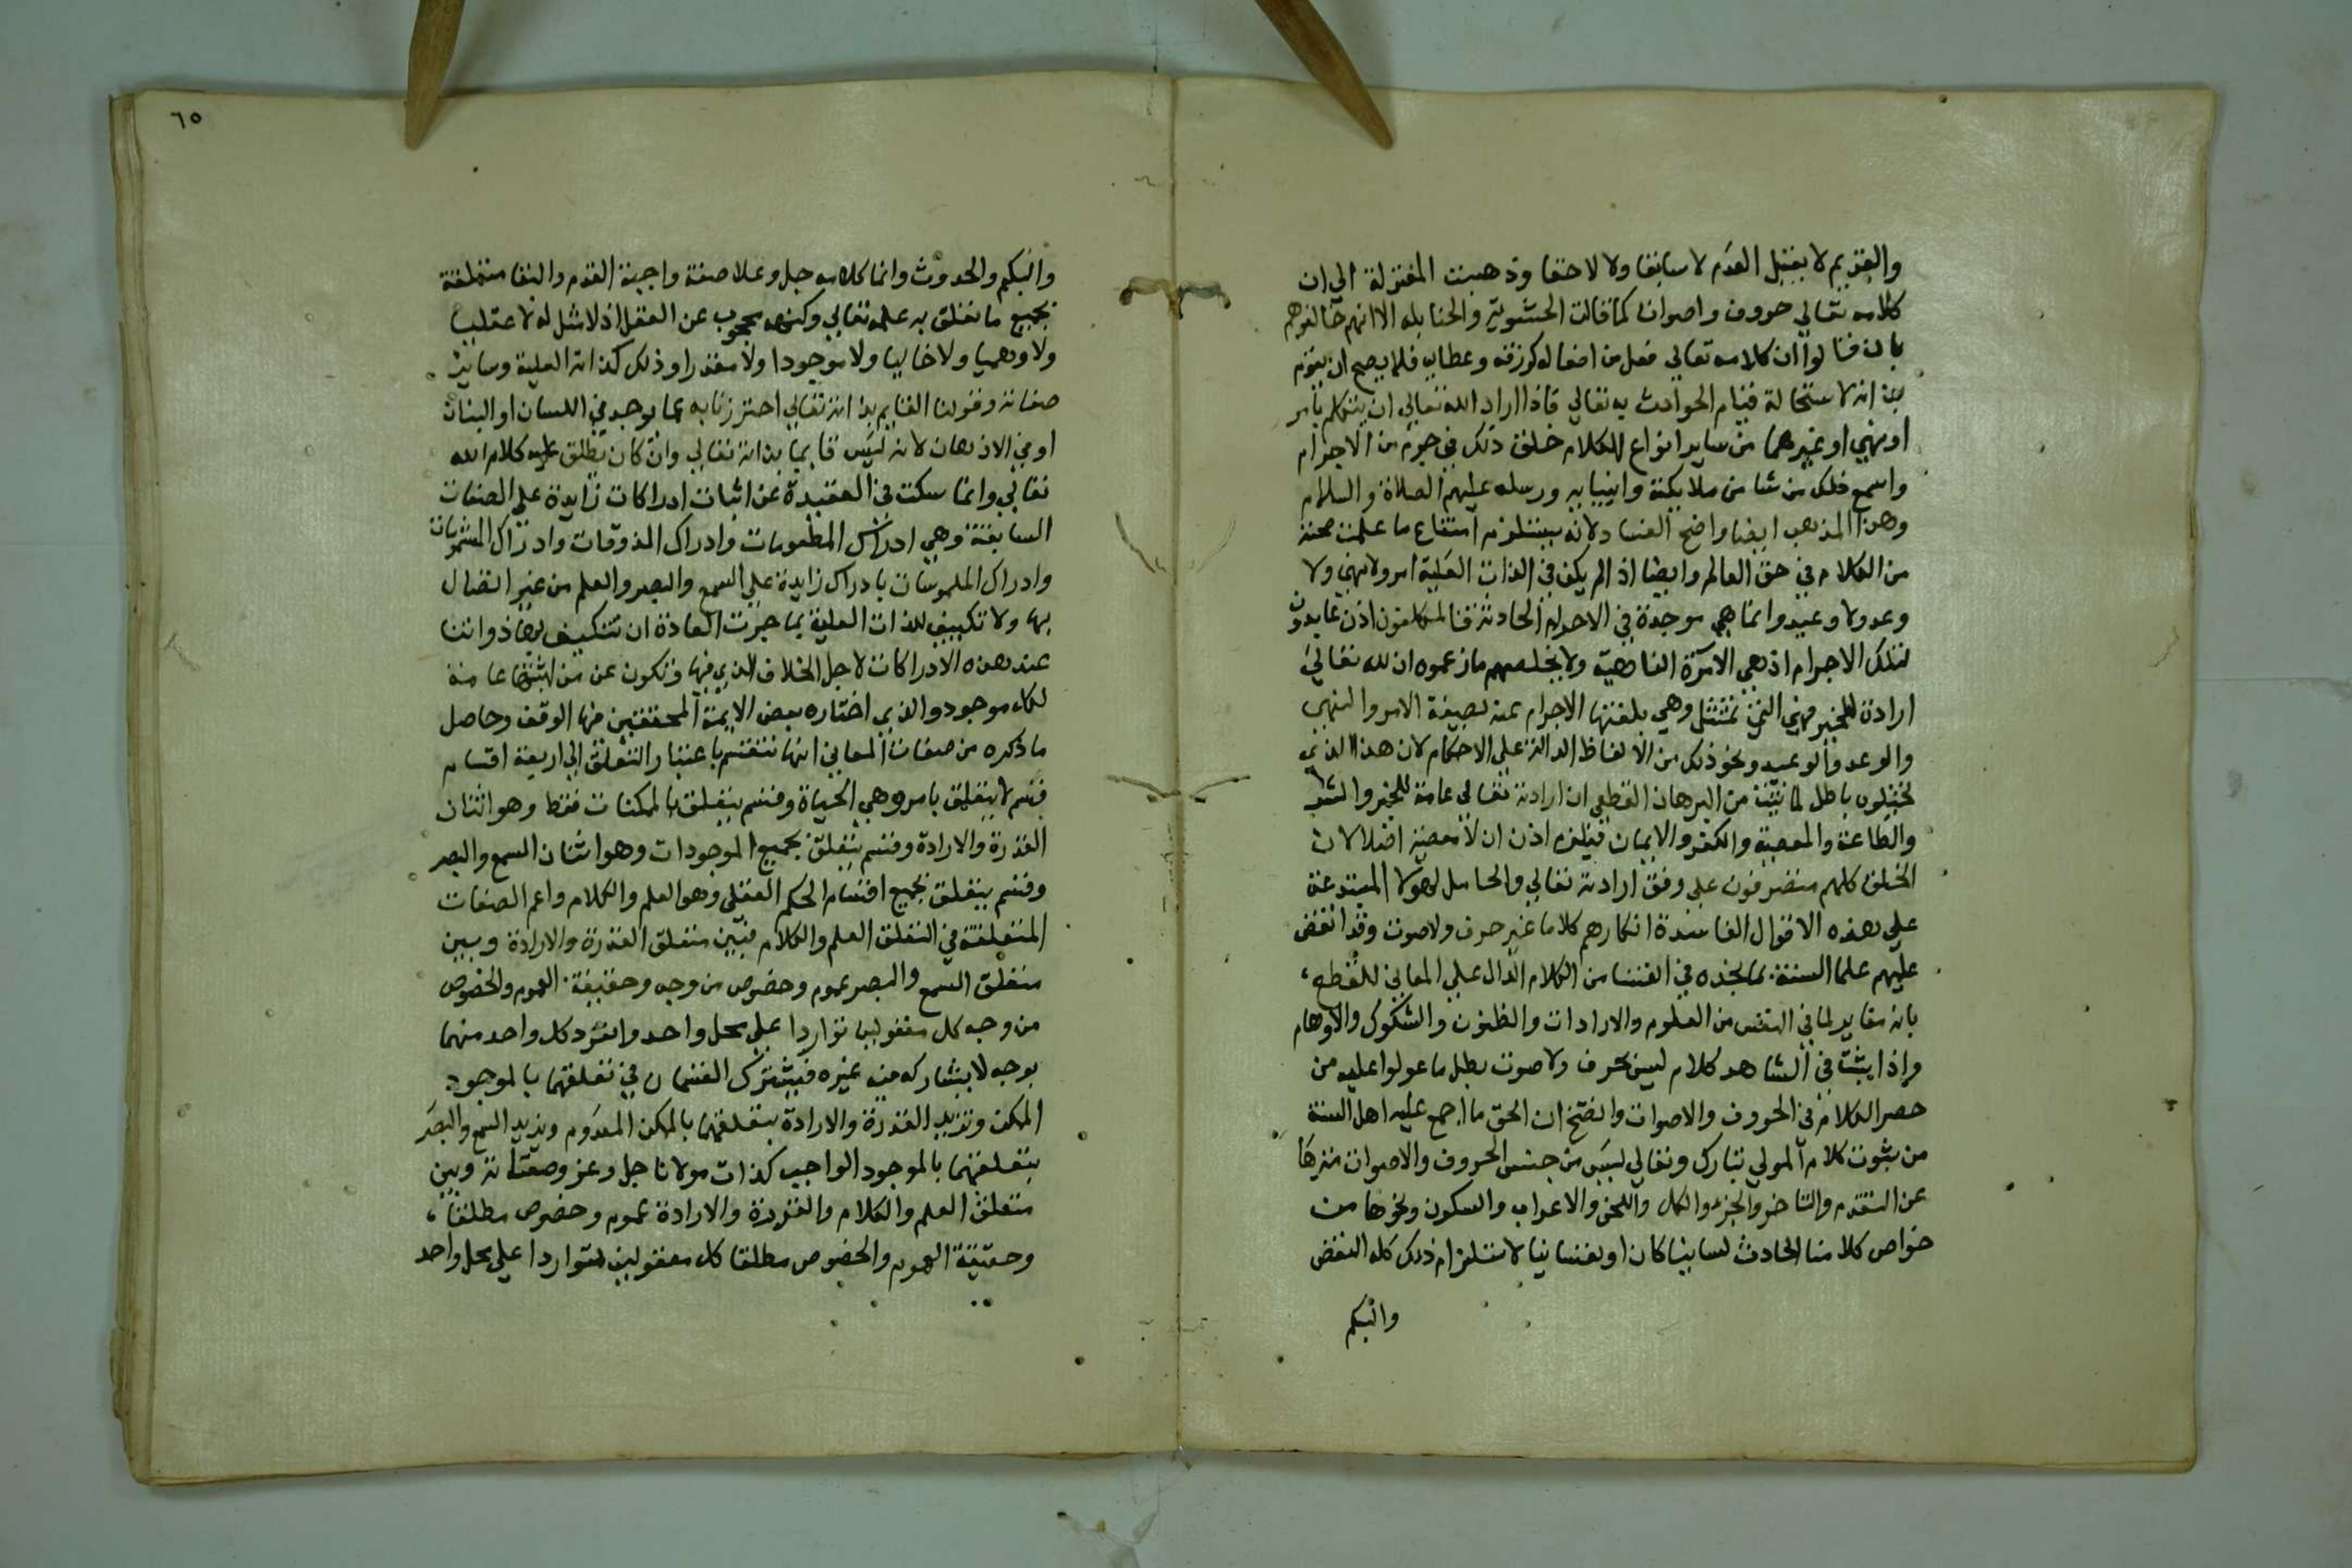 والقديم لا يقبل العدم لا سابقا ولا لاحقا وذهبت المعتزلة الي ان
كلامه تعالي حروف واصوات كما قالت الحشوية والحنابله الا انهم خالفوهم
بان قالوا ان كلامه تعالي فعل من افعاله كرزقه وعطايه فلا يصح ان يقوم
بذاته لاستحالة قيام الحوادث به تعالي فاذا اراد الله تعالي ان يتكلم بامر
او نهي او غيرهما من ساير انواع الكلام خلق ذلك في جرم من الاجرام
واسمع ذلك من شا من ملايكته وانبيايه ورسله عليهم الصلاة والسلام
وهذا المذهب ايضا واضح الفساد لانه يستلزم امتناع ما علمت صحته
من الكلام في حق العالم وايضا اذا لم يكن في الذات العلية امر ولا نهي ولا
وعد ولا وعيد وانما هي موجدة في الاجرام الحادثة فالمكلفون اذن عابدون
لتلك الاجرام اذ هي الامرة الناهية ولا يخلصهم ما زعموه ان لله تعالي
ارادة للخير فهي التي تمتثل وهي بلغتها الاجرام عنه بصيغة الامر والنهي
والوعد والوعيد ونحو ذلك من الالفاظ الدالة علي الاحكام لان هذا الذي
تخيلوه باطل لما تبين من البرهان القطعي ان ارادته تعالي عامة للخير والشر
والطاعة والمعصية والكفر والايمان فيلزم اذن ان لا معصية اصلا لان
الخلق كلهم متصرفون علي وفق ارادته تعالي والحامل لهولا المبتدعة
علي هذه الاقوال الفاسدة انكارهم كلاما غير حرف ولا صوت وقد انفض
عليهم علما السنة بما نجده في انفسنا من الكلام الدال علي المعاني للقطع
بانه مغاير لما في النفس من العلوم والارادات والظنون والشكوك والاوهام
واذا يثبت في الشاهد كلام ليس بحرف ولا صوت بطل ما عولوا عليه من
حصر الكلام في الحروف والاصوات واتضح ان الحق ما اجمع عليه اهل السنة
من ثبوت كلام المولي تبارك وتعالي ليس من جنس الحروف والاصوات منزها
عن التقدم والتاخر والجزء والكل واللحن والاعراب والسكون ونحوها من
خواص كلامنا الحادث لسانيا كان او نفسانيا لاستلزام ذلك كله النقض
والبكم
٦٥
والبكم والحدوث وانما كلامه جل وعلا صفة واجبة القدم والبقا متعلقة
بجميع ما تعلق به علمه تعالي وكنهه محجوب عن العقل اذ لا مثل له لا عقليا
ولا وهميا ولا خاليا ولا موجودا ولا مقدرا وذلك كذاته العلية وساير
صفاته وقولنا القايم بذاته تعالي احترزنا به عما يوجد في اللسان او البنان
او في الاذهان لانه ليس قايما بذاته تعالي وان كان يطلق عليه كلام الله
تعالي وانما سكت في العقيدة عن اثبات ادراكات زايدة علي الصفات
السابقة وهي ادراك المطعومات وادراك المذوقات وادراك المشمومات
وادراك الملموسات بادراك زايدة علي السمع والبصر والعلم من غير اتصال
بها ولا تكييف للذات العلية بما جرت العادة ان تتكيف بها ذواتنا
عند هذه الادراكات لاجل الخلاف الذي فيها وتكون عن من اثبتها عامة
لكل موجود والذي اختاره بعض الايمة المحققين فيها الوقف وحاصل
ما ذكره من صفات المعاني انها تنقسم باعتبار التعلق الي اربعة اقسام
قسم لا يتعلق بامر وهي الحياة وقسم يتعلق بالممكنات فقط وهو اثنان
القدرة والارادة وقسم يتعلق بجميع الموجودات وهو اثنان السمع والبصر
وقسم يتعلق بجميع اقسام الحكم العقلي وهو العلم والكلام واعم الصفات
المتعلقة في التعلق العلم والكلام فبين متعلق القدرة والارادة وبين
متعلق السمع والبصر عموم وخصوص من وجه وحقيقة العموم والخصوص
من وجه كل معقولين تواردا علي محل واحد وانفرد كل واحد منهما
بوجه لا يشاركه فيه غيره فيشترك القسمان في تعلقهما بالموجود
الممكن وتزيد القدرة والارادة بتعلقهما بالممكن المعدوم ويزيد السمع والبصر
بتعلقهما بالموجود الواجب كذات مولانا جل وعز وصفاته وبين
متعلق العلم والكلام والقدرة والارادة عموم وخصوص مطلقا
وحقيقة العموم والخصوص مطلقا كل معقولين تواردا علي محل واحد